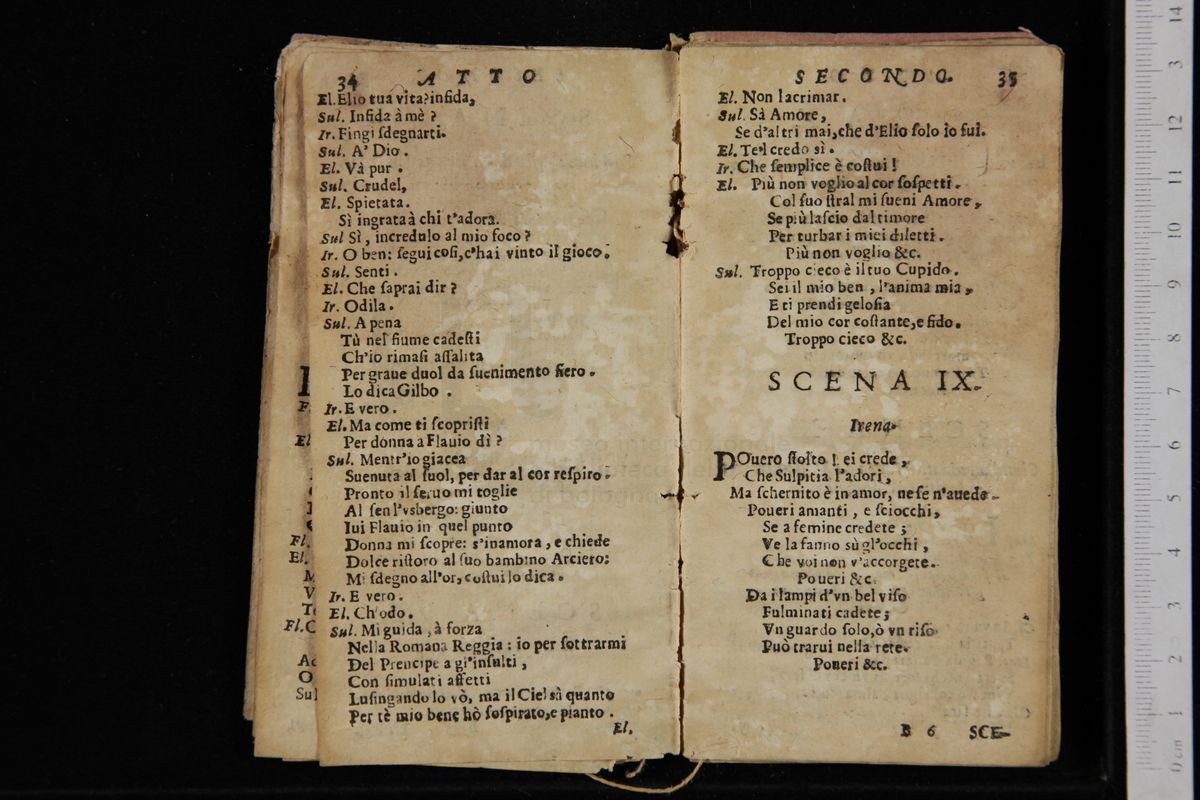 34 ATTO
El. Elio tua vita? infida,
Sul. Infida à mè ?
Ir. Fingi ſdegnarti.
Sul. A' Dio.
El. Và pur.
Sul. Crudel,
El. Spietata.
Sì ingrata à chi t'adora.
Sul Sì, incredulo al mio foco ?
Ir. O ben: ſegui coſi, c'hai vinto il gioco.
Sul. Senti.
El. Che ſaprai dir ?
Ir. Odila.
Sul. A pena
Tù nel fiume cadeſti
Ch'io rimaſi aſſalita
Per graue duol da ſuenimento fiero.
Lo dica Gilbo.
Ir. E vero.
El. Ma come ti ſcopriſti
Per donna a Flauio dì ?
Sul. Mentr'io giacea
Suenuta al ſuol, per dar al cor reſpiro.
Pronto il ſeruo mi toglie
Al ſen l'vsbergo: giunto
Iui Flauio in quel punto
Donna mi ſcopre: s'inamora, e chiede
Dolce riſtoro al ſuo bambino Arciero:
Mi ſdegno all'or, coſtui lo dica.
Ir. E vero.
El. Ch'odo.
Sul. Mi guida, à forza
Nella Romana Reggia: io per ſottrarmi
Del Prencipe a gl'inſulti,
Con ſimulati affetti
Luſingando lo vò, ma il Ciel sà quanto
Per tè mio bene hò ſoſpirato, e pianto.
El.
SECONDO. 35
El. Non lacrimar.
Sul. Sà Amore,
Se d'altri mai, che d'Elio ſolo io fui.
El. Te'l credo sì.
Ir. Che ſemplice è coſtui !
El. Più non voglio al cor ſoſpetti.
Col ſuo ſtral mi ſueni Amore,
Se più laſcio dal timore
Per turbar i miei diletti.
Più non voglio &c.
Sul. Troppo cieco è il tuo Cupido.
Sei il mio ben, l'anima mia,
E ti prendi geloſia
Del mio cor coſtante, e fido.
Troppo cieco &c.
SCENA IX.
Irena.
POuero ſtolto ! ei crede,
Che Sulpitia l'adori,
Ma ſchernito è in amor, ne ſe n'auede.
Poueri amanti, e ſciocchi,
Se a femine credete;
Ve la fanno sù gl'occhi,
Che voi non v'accorgete.
Poueri &c.
Da i lampi d'vn bel viſo
Fulminati cadete;
Vn guardo ſolo, ò vn riſo
Può trarui nella rete.
Poueri &c.
B 6 SCE-